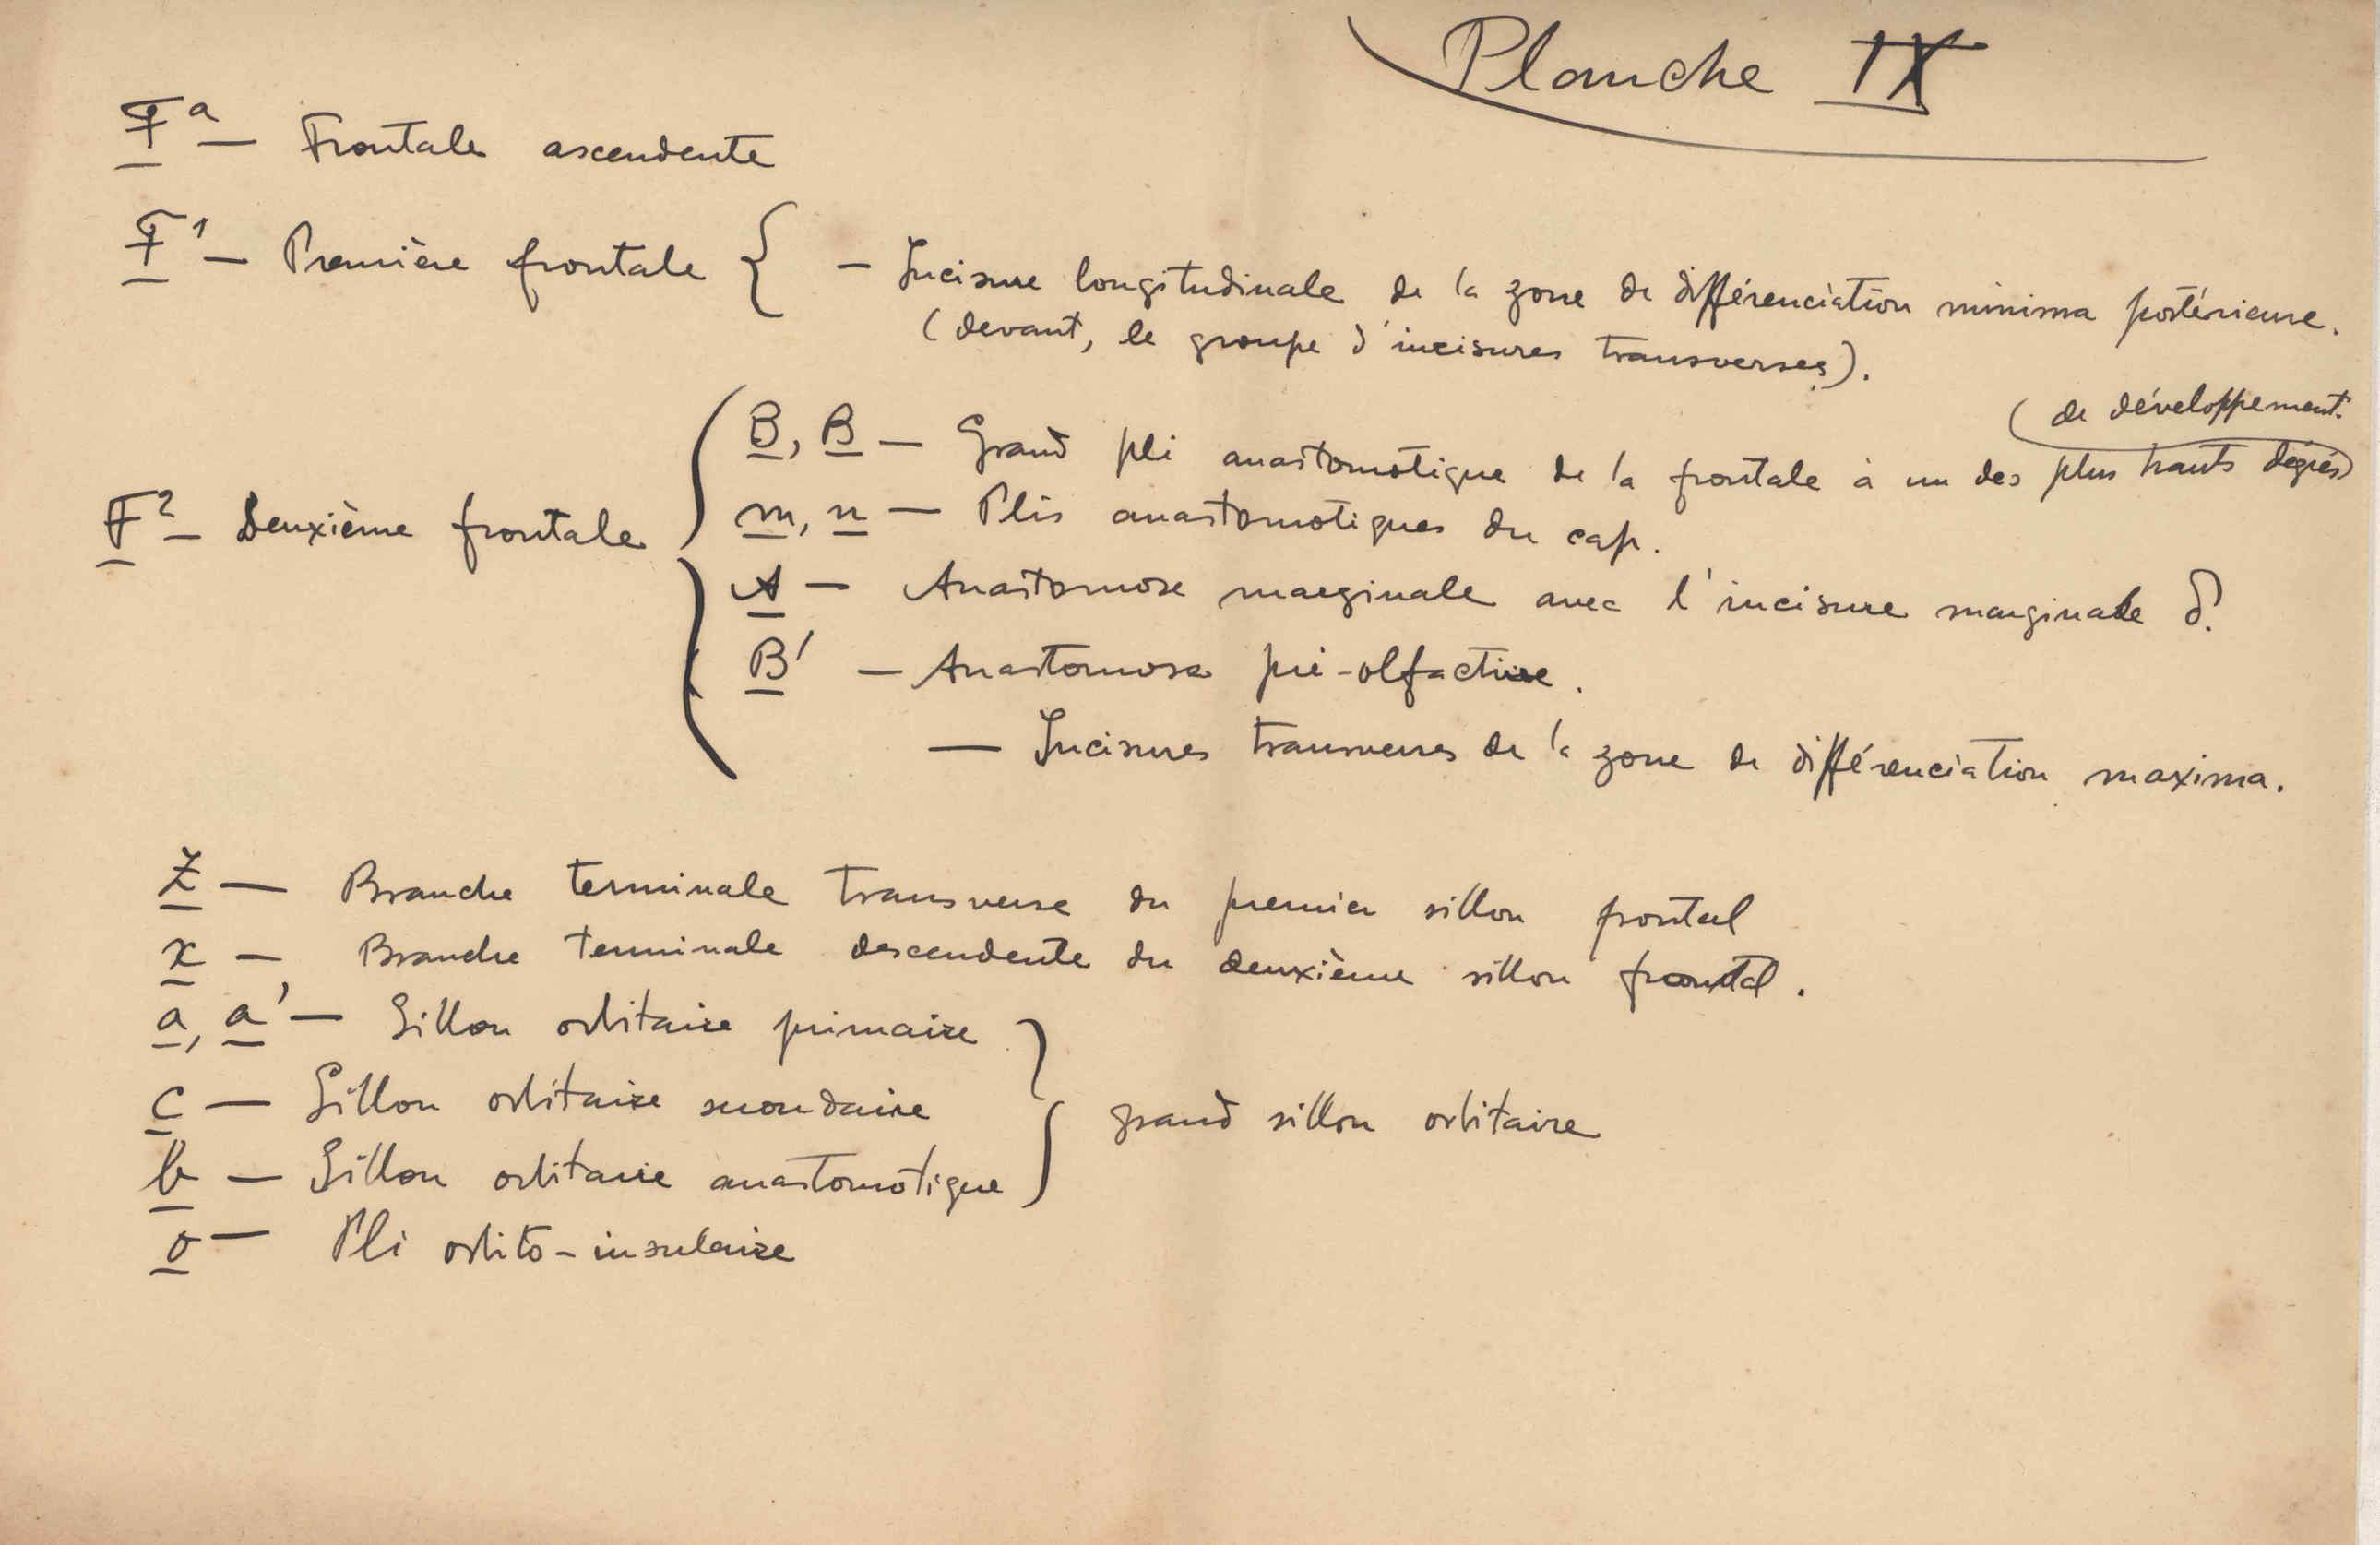 Planche IX
Fª — Frontale ascendente
F¹ — Première frontale { — Incisure longitudinale de la zone de différenciation minima postérieure.
(devant, le groupe d'incisures transverses).
(de développement.
B, B — Grand pli anastomotique de la frontale à un des plus hauts degrés)
m, n — Plis anastomotiques du cap.
F² — Deuxième frontale
A — Anastomose marginale avec l'incisure marginale δ.
B' — Anastomose pré-olfactive.
— Incisures transverses de la zone de différenciation maxima.
Z — Branche terminale transverse du premier sillon frontal
x — Branche terminale descendente du deuxième sillon frontal.
a, a' — Sillon orbitaire primaire
c — Sillon orbitaire secondaire
grand sillon orbitaire
b — Sillon orbitaire anastomotique
o — Pli orbito-insulaire